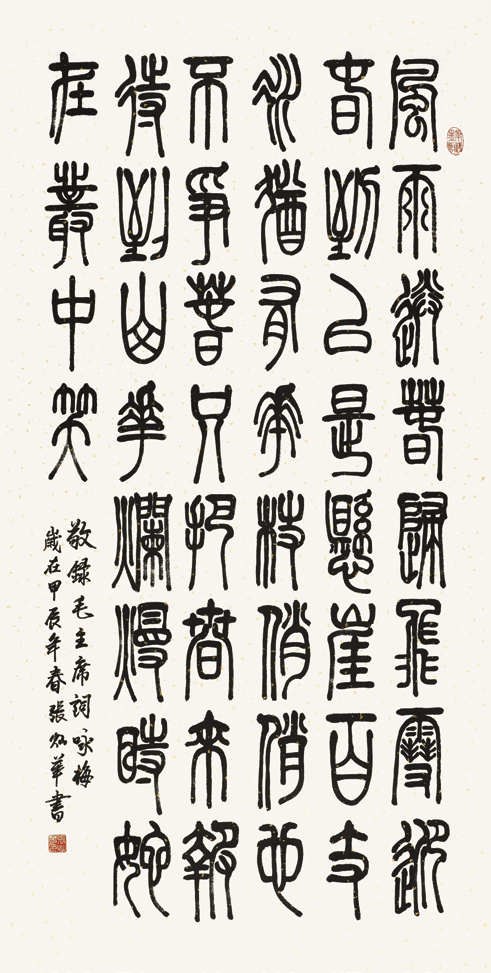 風雨送春歸飛雪迎
春到已是懸崖百丈
冰猶有花枝俏俏也
不爭春只把春來報
待到山花爛熳時她
在叢中笑
敬録毛主席詞咏梅
歲在甲辰年春張華書